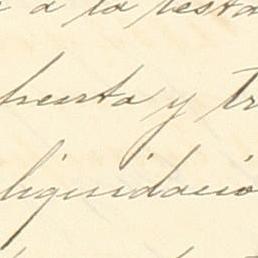 a la resta
huerta y tr
liquidació